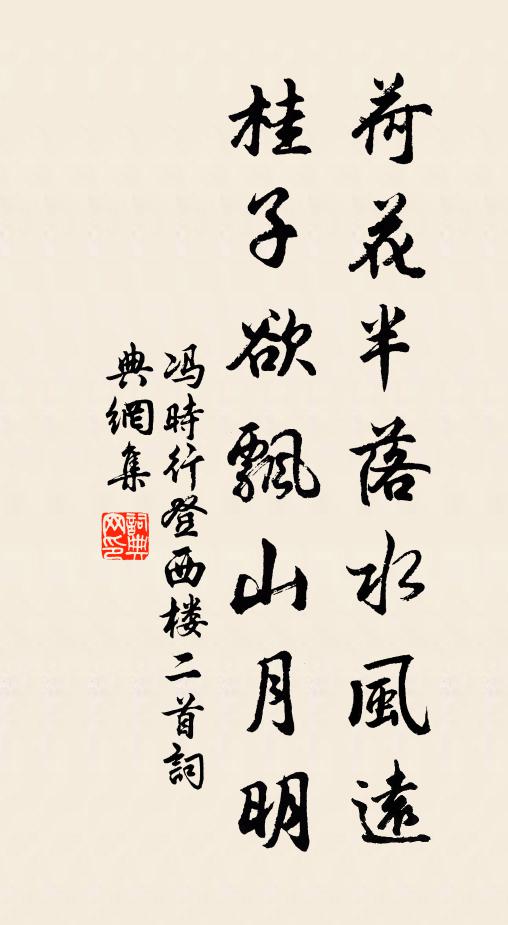 荷花半落水風遠
桂子欲飄山月明
冯時行登西楼二首詞
典網集
詞典网印